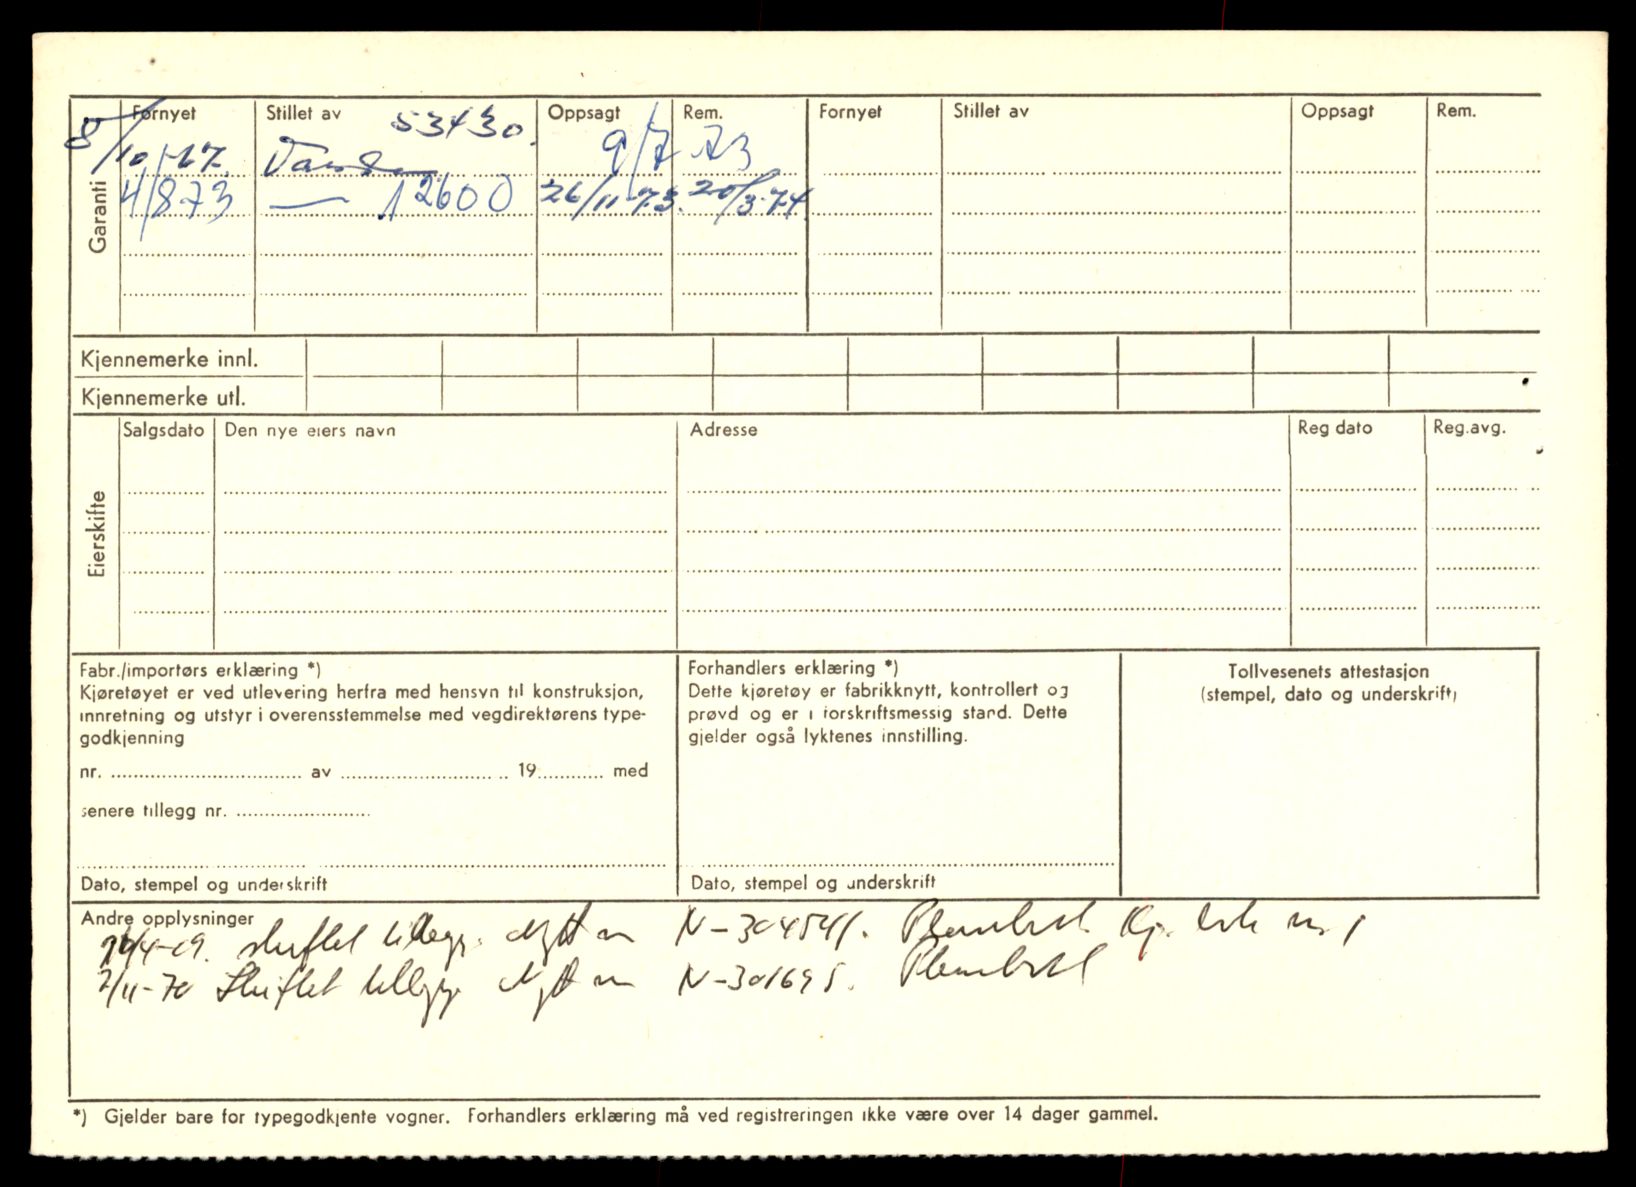 Garanti
Fornyet Stillet av Oppsagt Rem. Fornyet Stillet av Oppsagt Rem.
8/10-67. 53430. 9/7 73
4/8 73 — 12600 26/11-73. 20/3-74.
Kjennemerke innl.
Kjennemerke utl.
Eierskifte
Salgsdato Den nye eiers navn Adresse Reg dato Reg.avg.
Fabr./importørs erklæring *)
Kjøretøyet er ved utlevering herfra med hensyn til konstruksjon,
innretning og utstyr i overensstemmelse med vegdirektørens type-
godkjenning
nr. av 19 med
senere tillegg nr.
Dato, stempel og underskrift
Forhandlers erklæring *)
Dette kjøretøy er fabrikknytt, kontrollert og
prøvd og er i forskriftsmessig stand. Dette
gjelder også lyktens innstilling.
Dato, stempel og underskrift
Tollvesenets attestasjon
(stempel, dato og underskrift)
Andre opplysninger
/4-69. skiftet tillegg. Nytt nr N-304541. Plombert Kj.
2/11-70 Skiftet tillegg Nytt nr N-301695. Plombert
*) Gjelder bare for typegodkjente vogner. Forhandlers erklæring må ved registreringen ikke være over 14 dager gammel.